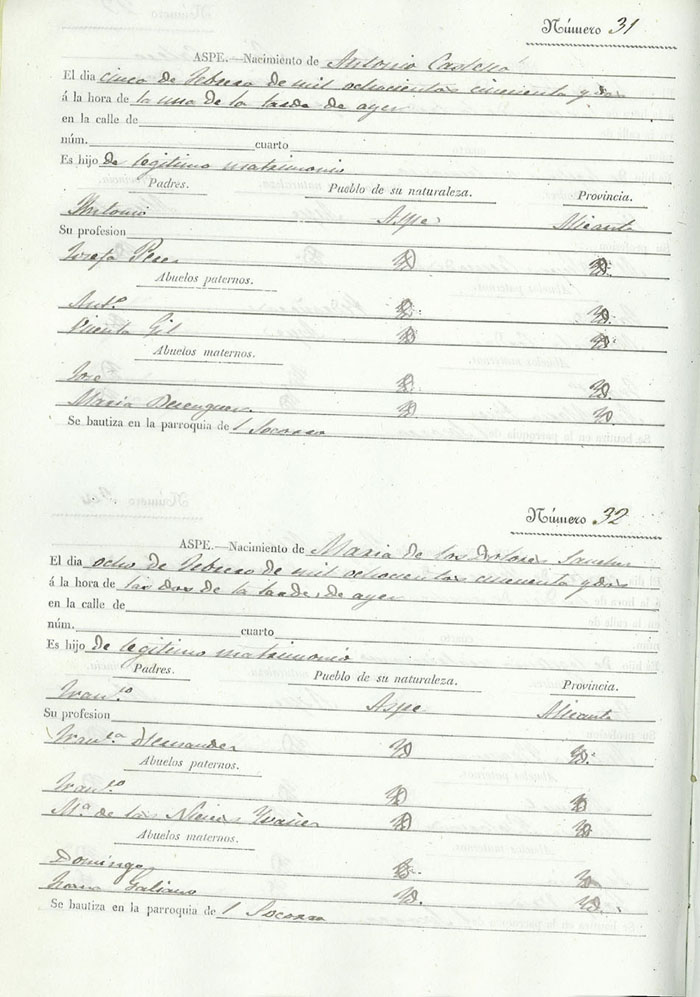 Número 31
ASPE.—Nacimiento de Antonio
El dia cinco de Febrero de mil ochocientos cincuenta y dos
á la hora de la una de la tarde de ayer
en la calle de
núm. cuarto
Es hijo de legitimo matrimonio
Padres. Pueblo de su naturaleza. Provincia.
Antonio Aspe Alicante
Su profesion
Josefa Perez
Abuelos paternos.
Ant.º
Vicenta Gil
Abuelos maternos.
Jose
Maria Berenguer
Se bautiza en la parroquia de l Socorro
Número 32
ASPE.—Nacimiento de Maria de los Dolores Sanchez
El dia ocho de Febrero de mil ochocientos cincuenta y dos
á la hora de las dos de la tarde de ayer
en la calle de
núm. cuarto
Es hijo de legitimo matrimonio
Padres. Pueblo de su naturaleza. Provincia.
Fran.co Aspe Alicante
Su profesion
Fran.ca
Abuelos paternos.
Fran.co
M.ª de las Nieves
Abuelos maternos.
Domingo
Galiano
Se bautiza en la parroquia de l Socorro